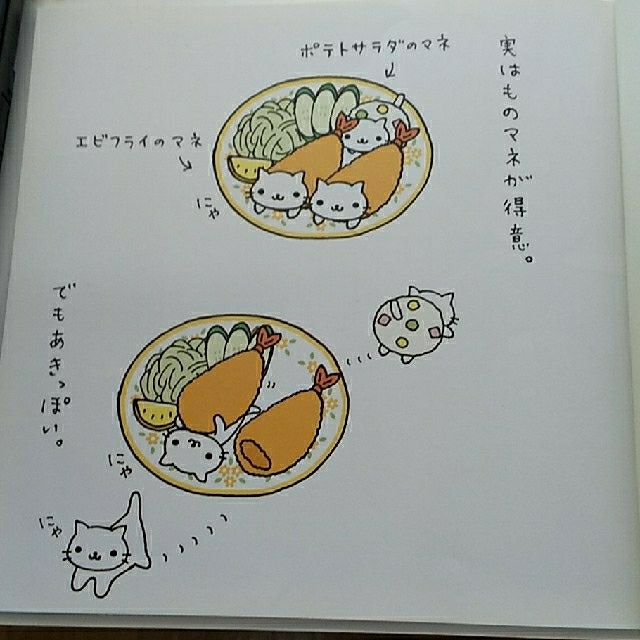 実はものマネが得意。
ポテトサラダのマネ
エビフライのマネ
にゃ
でもあきっぽい。
にゃ
にゃ